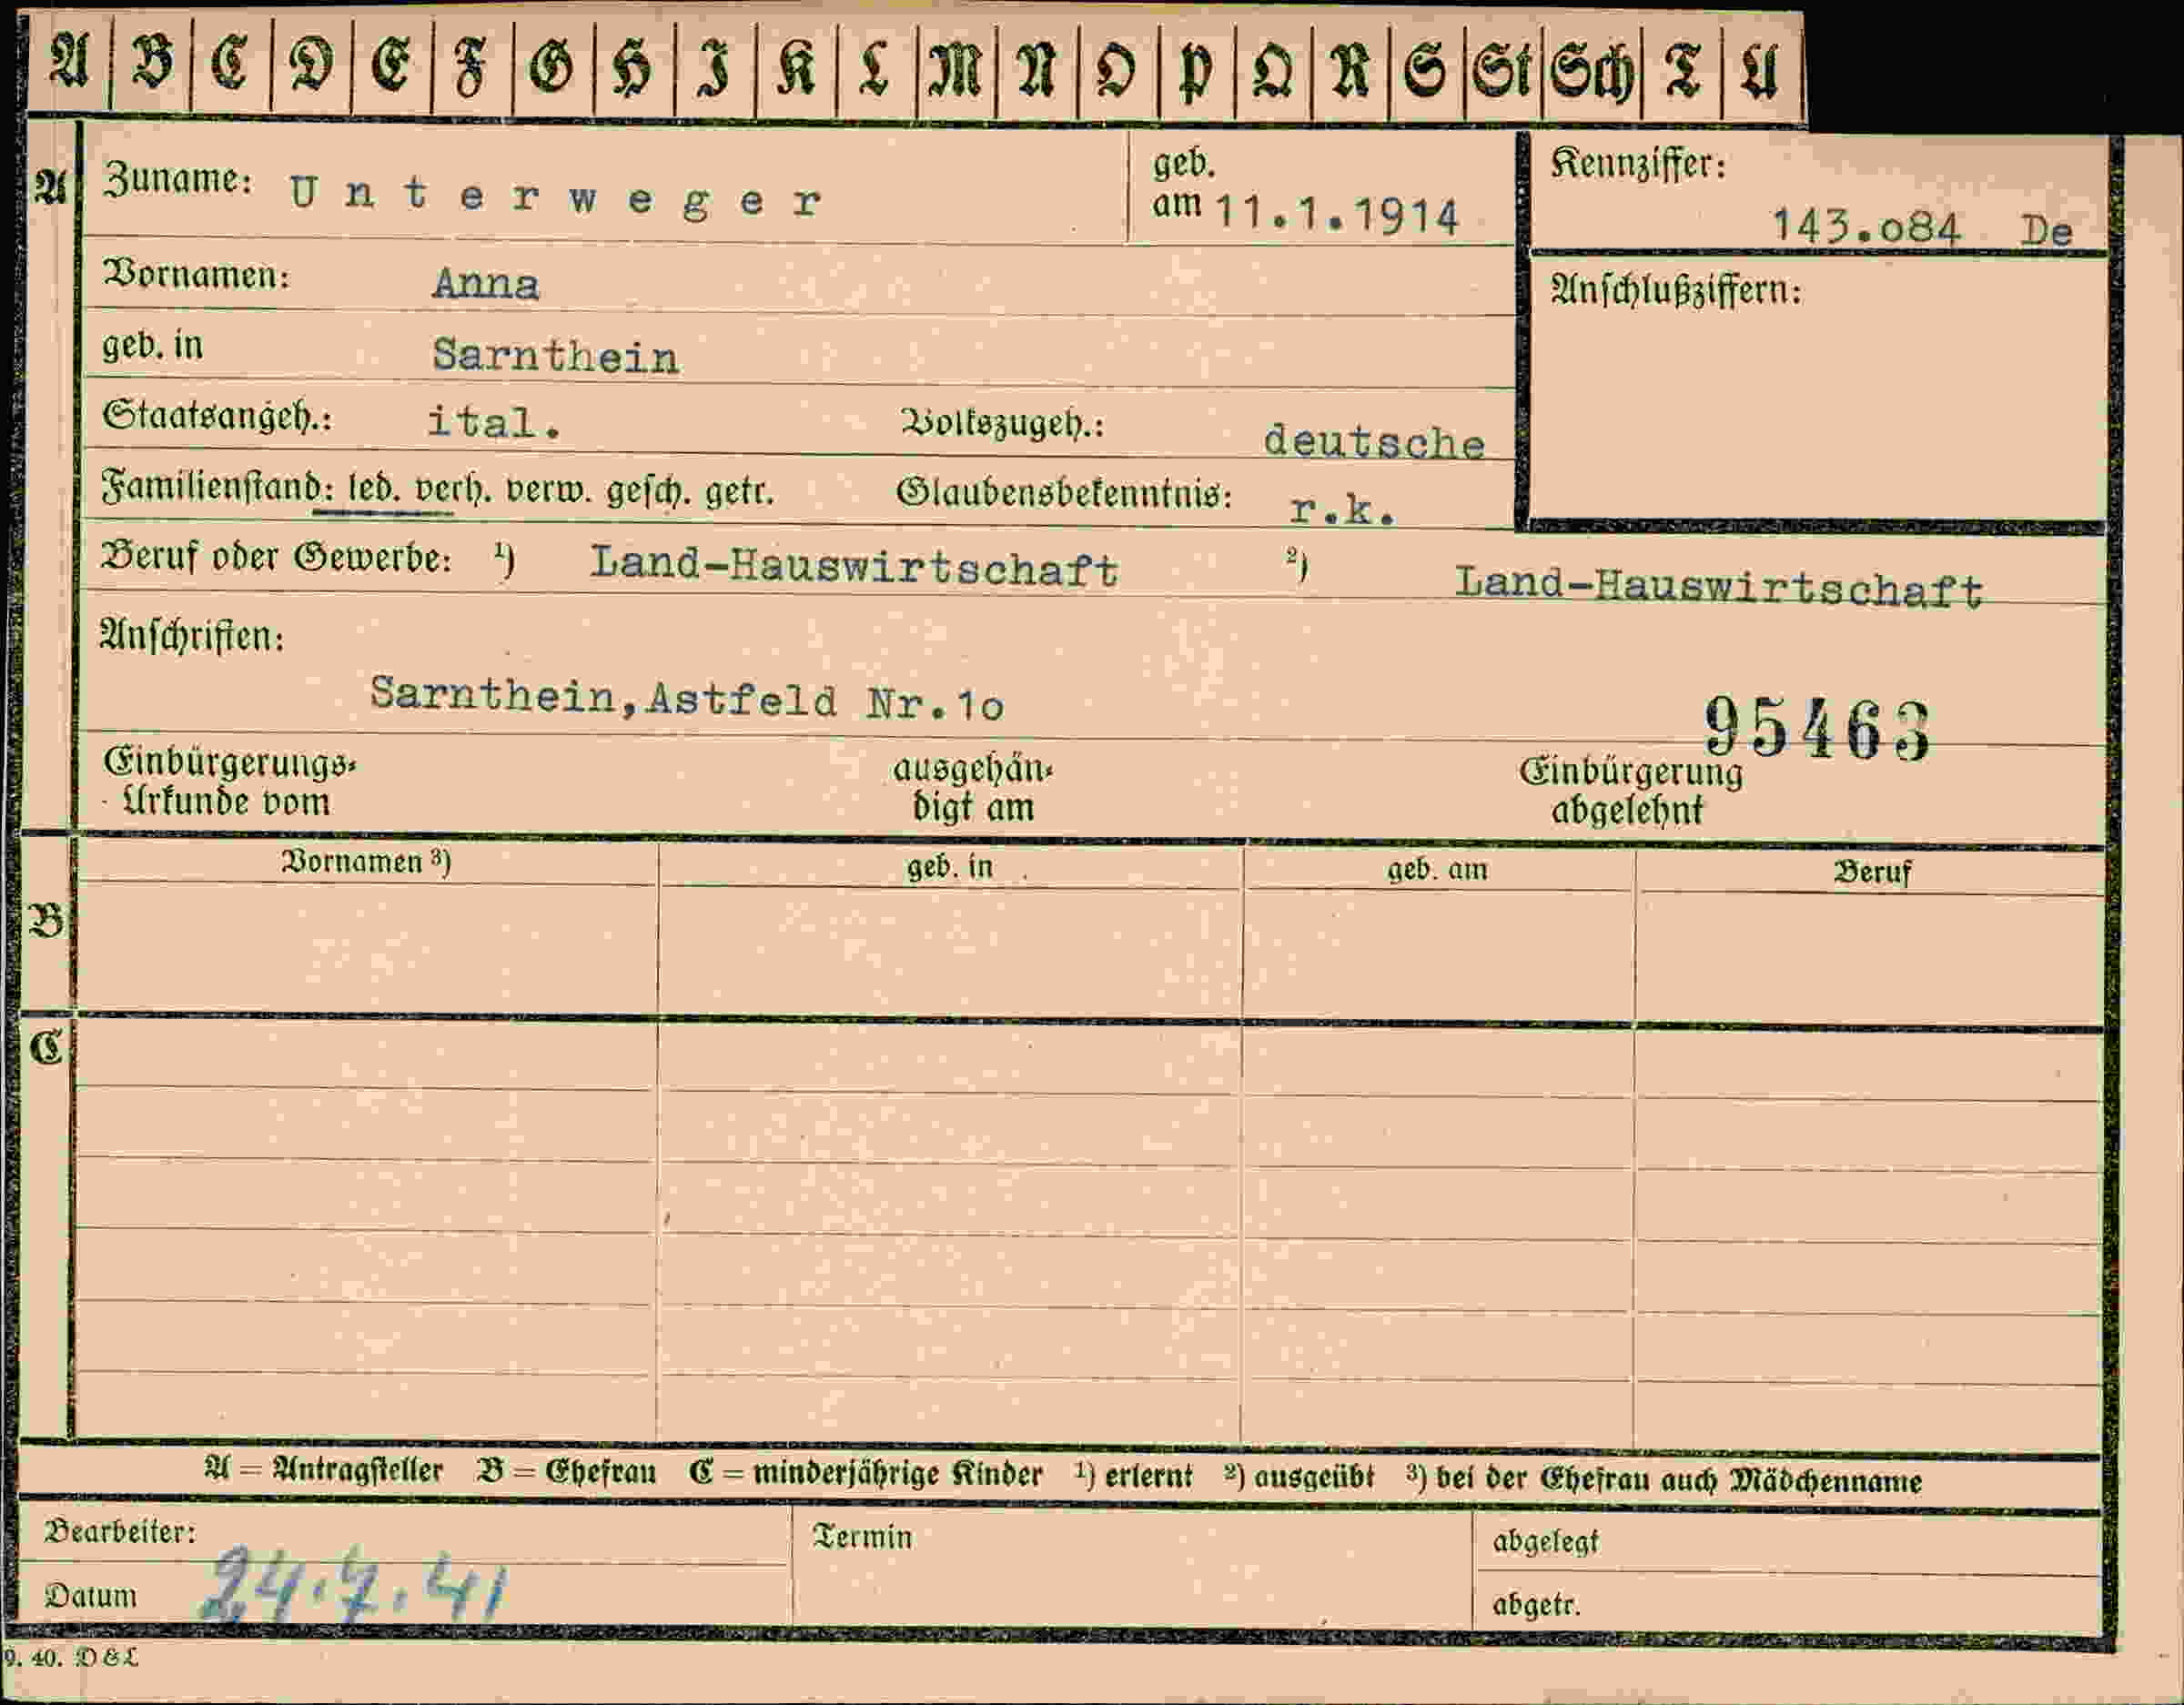 A B C D E F G H I K L M N O P Q R S St Sch T U
A Zuname: Unterweger geb. am 11.1.1914 Kennziffer: 143.o84 De
Vornamen: Anna Anschlußziffern:
geb. in Sarnthein
Staatsangeh.: ital. Volkszugeh.: deutsche
Familienstand: led. verh. verw. gesch. getr. Glaubensbekenntnis: r.k.
Beruf oder Gewerbe: 1) Land-Hauswirtschaft 2) Land-Hauswirtschaft
Anschriften:
Sarnthein,Astfeld Nr.1o
95463
Einbürgerungs- ausgehän- Einbürgerung
Urkunde vom digt am abgelehnt
Vornamen 3) geb. in geb. am Beruf
B
C
A = Antragsteller B = Ehefrau C = minderjährige Kinder 1) erlernt 2) ausgeübt 3) bei der Ehefrau auch Mädchenname
Bearbeiter: Termin abgelegt
Datum 24.7.41 abgetr.
9. 40. D & L